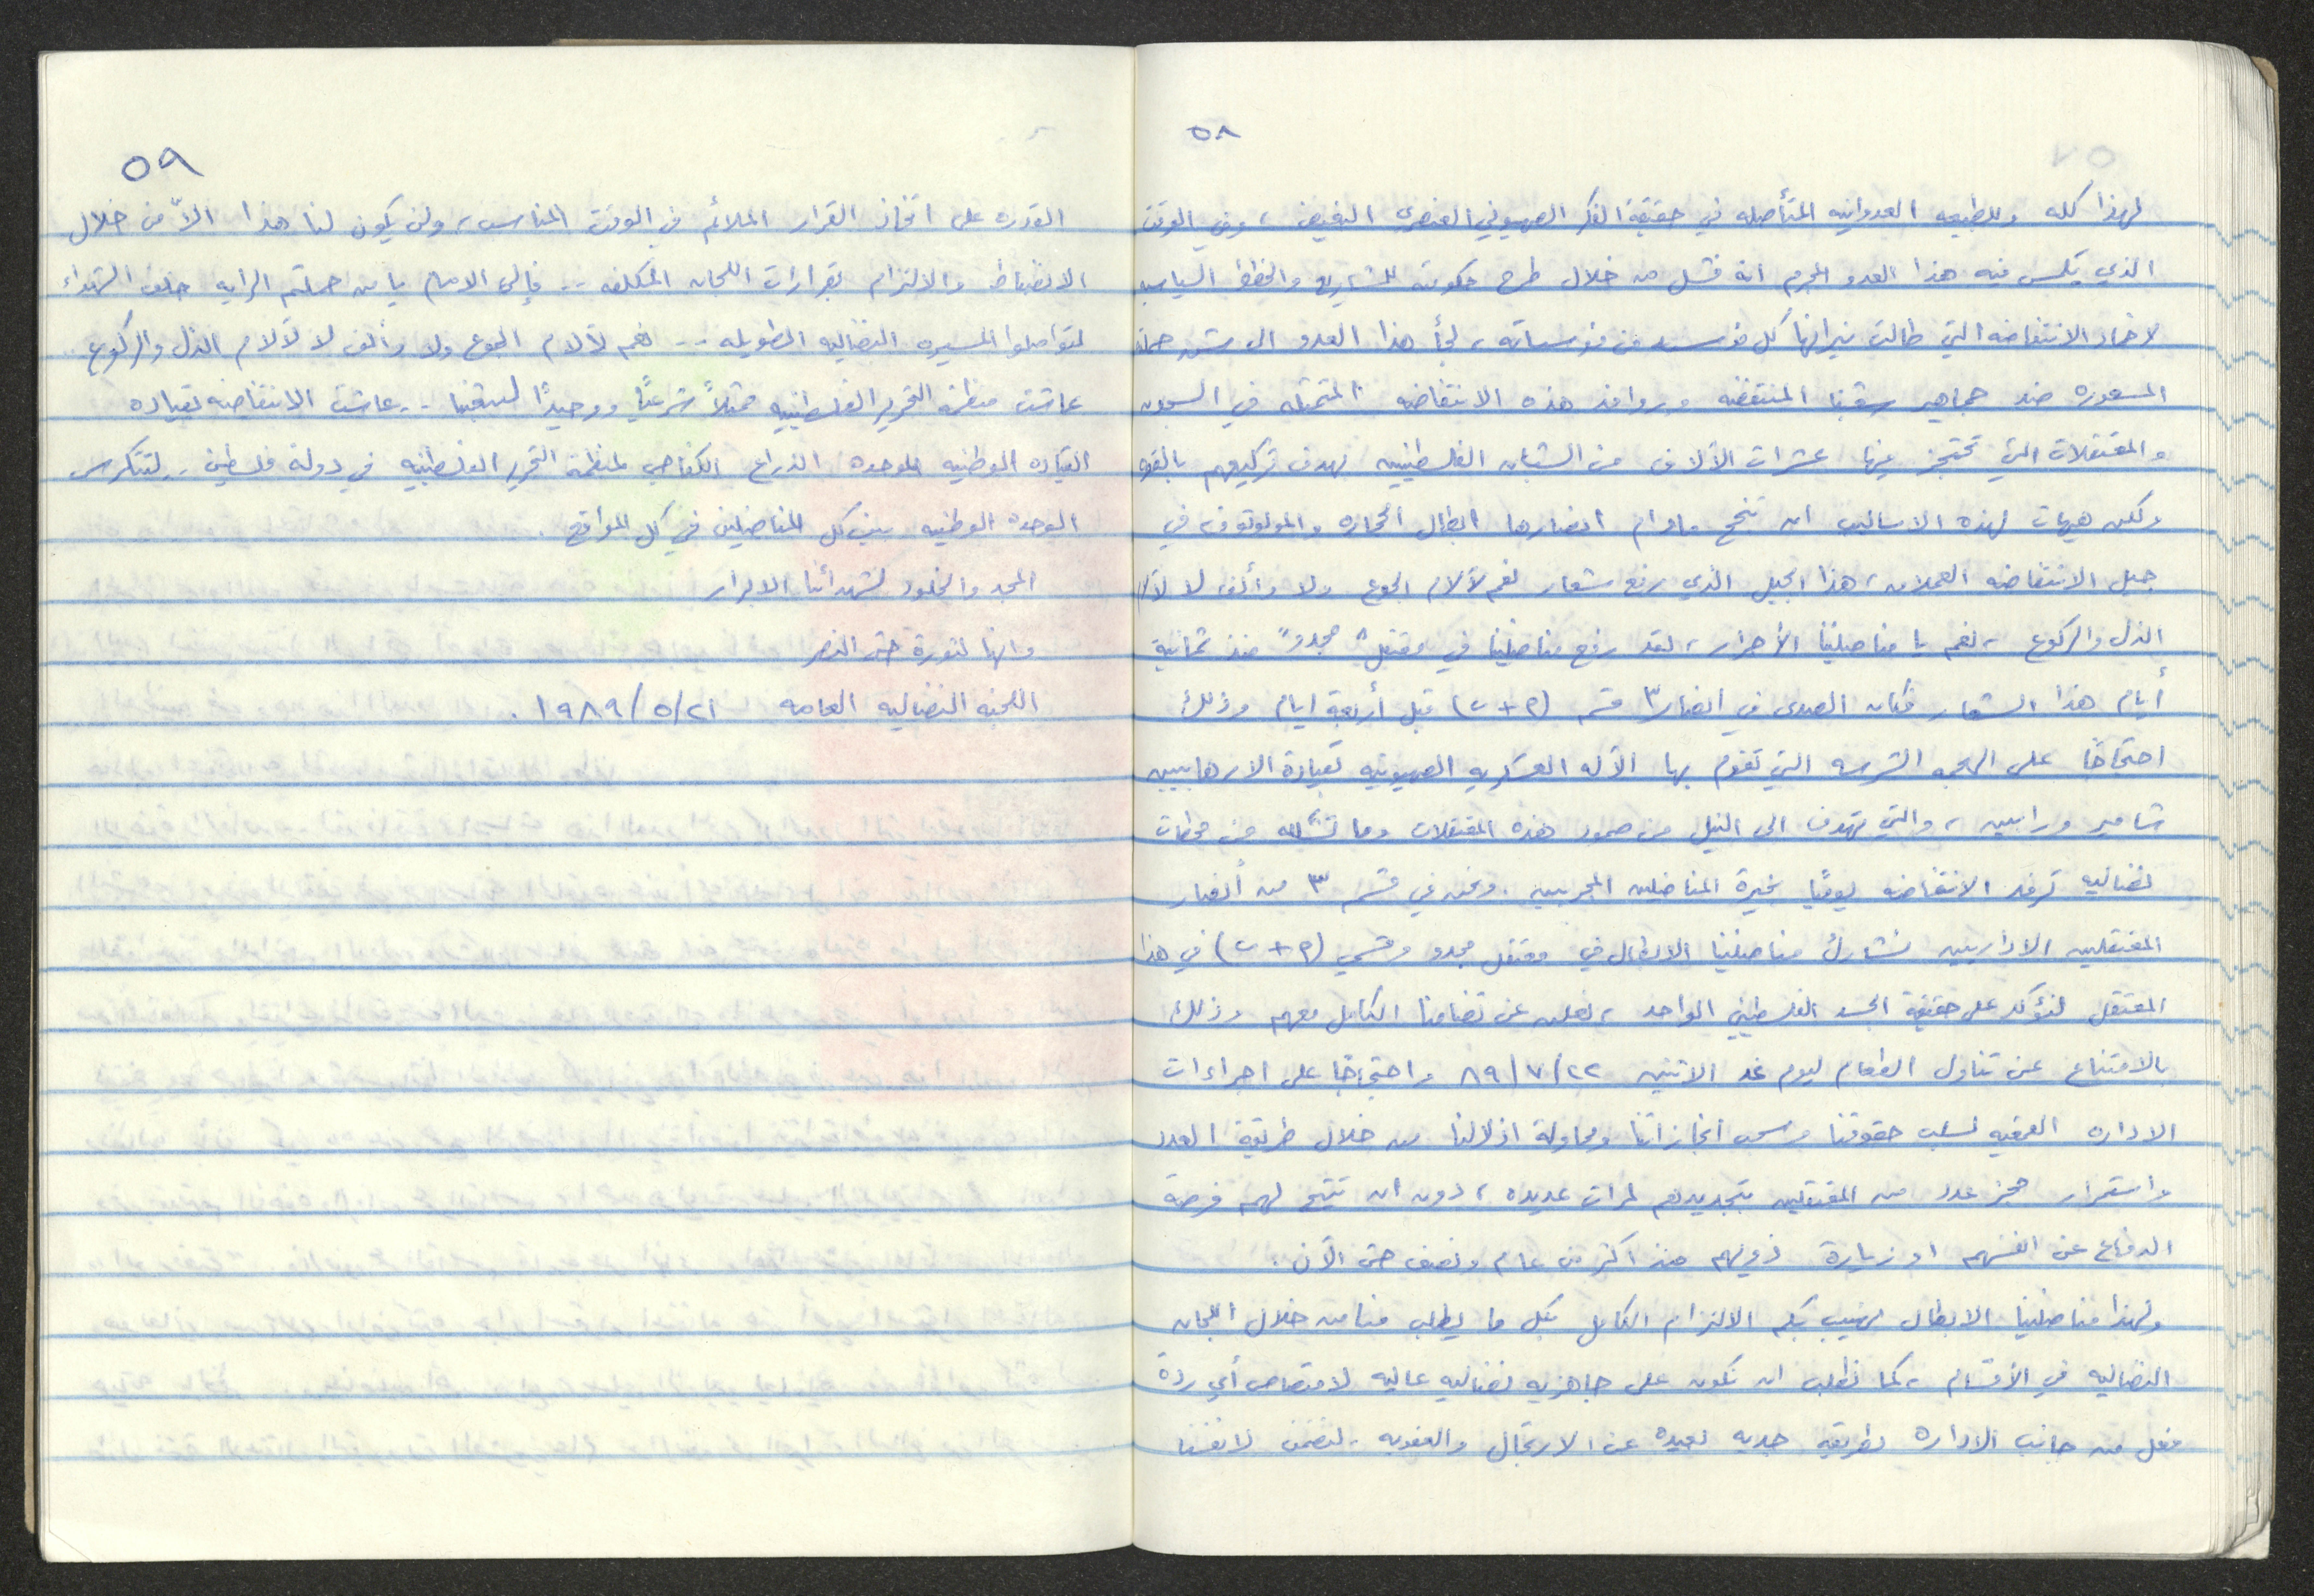 ٥٨
لهذا كله وللطبيعه العدوانيه المتأصله في حقيقة الفكر الصهيوني العنصري البغيض، وفي الوقت
الذي يكس فيه هذا العدو المجرم انه فشل من خلال طرح حكومته للمشاريع والخطط السياسيه
لاخماد الانتفاضه التي طالت نيرانها كل مؤسسه من مؤسساته، لجأ هذا العدو الى شن حملته
المسعوره ضد جماهير شعبنا المنتفضه وروافد هذه الانتفاضه المتمثله في السجون
والمعتقلات التي تحتجز فيها عشرات الألاف من الشبان الفلسطينيين بهدف تركيعهم بالقوه
ولكن هيهات لهذه الاساليب ان تنجح مادام انصارها ابطال الحجاره والمولوتوف في
جيل الانتفاضه العملاق، هذا الجيل الذي رفع شعار نعم لآلام الجوع ولا وألف لا لآلام
الذل والركوع، نعم يا مناضلينا الأحرار، لقد رفع مناضلينا في معتقل "مجدو" منذ ثمانية
أيام هذا الشعار فكان الصدى في انصار٣ قسم (٢+ب) قبل أربعة ايام وذلك
احتجاجًا على الهجمه الشرسه التي تقوم بها الآله العسكريه الصهيونيه بقيادة الارهابيين
شامير ورابين، والتي تهدف الى النيل من صمود هذه المعتقلات وما تشكله من محطات
نضاليه ترفد الانتفاضه يوميًا بخيرة المناضلين المجربين. ونحن في قسم ٣ من أنصار
المعتقلين الاداريين نشارك مناضلينا الابطال في معتقل مجدو وقسمي (٢+ب) في هذا
المعتقل لنؤكد على حقيقة الجسد الفلسطيني الواحد، نعلن عن تضامنا الكامل معهم وذلك
بالامتناع عن تناول الطعام ليوم غد الاثنين ٨٩/٧/٢٢ واحتجاجًا على اجراءات
الاداره القمعيه لسلب حقوقنا وسحب انجازاتنا ومحاولة اذلالنا من خلال طريقة العدد
واستمرار حجز عدد من المعتقلين بتجديدهم لمرات عديده، دون ان تتيح لهم فرصة
الدفاع عن انفسهم او زيارة ذويهم منذ اكثر من عام ونصف حتى الآن.
ولهذا مناضلينا الابطال نهيب بكم الالتزام الكامل بكل ما يطلب منا من خلال اللجان
النضاليه في الأقسام، كما نطلب ان نكون على جاهزيه نضاليه عاليه لامتصاص أي ردة
فعل من جانب الاداره بطريقه جديه بعيده عن الارتجال والعفويه. لنضمن لانفسنا
٥٩
القدره على اتخاذ القرار الملائم في الوقت المناسب، ولن يكون لنا هذا الاّ من خلال
الانضباط والالتزام بقرارات اللجان المكلفه .. فإلى الامام يا من حملتم الرايه خلف الشهداء
لتواصلوا المسيره النضاليه الطويله .. نعم لآلام الجوع ولا وألف لا لآلام الذل والركوع.
عاشت منظمة التحرير الفلسطينيه ممثلاً شرعيًا ووحيدًا لشعبنا .. عاشت الانتفاضه بقياده
القياده الوطنيه الموحده الذراع الكفاحي لمنظمة التحرير الفلسطينيه في دولة فلسطين .. لتتكرس
الوحده الوطنيه بين كل المناضلين في كل المواقع.
المجد والخلود لشهدائنا الابرار
وانها لثورة حتى النصر
اللجنه النضاليه العامه ١٩٨٩/٥/٢١.